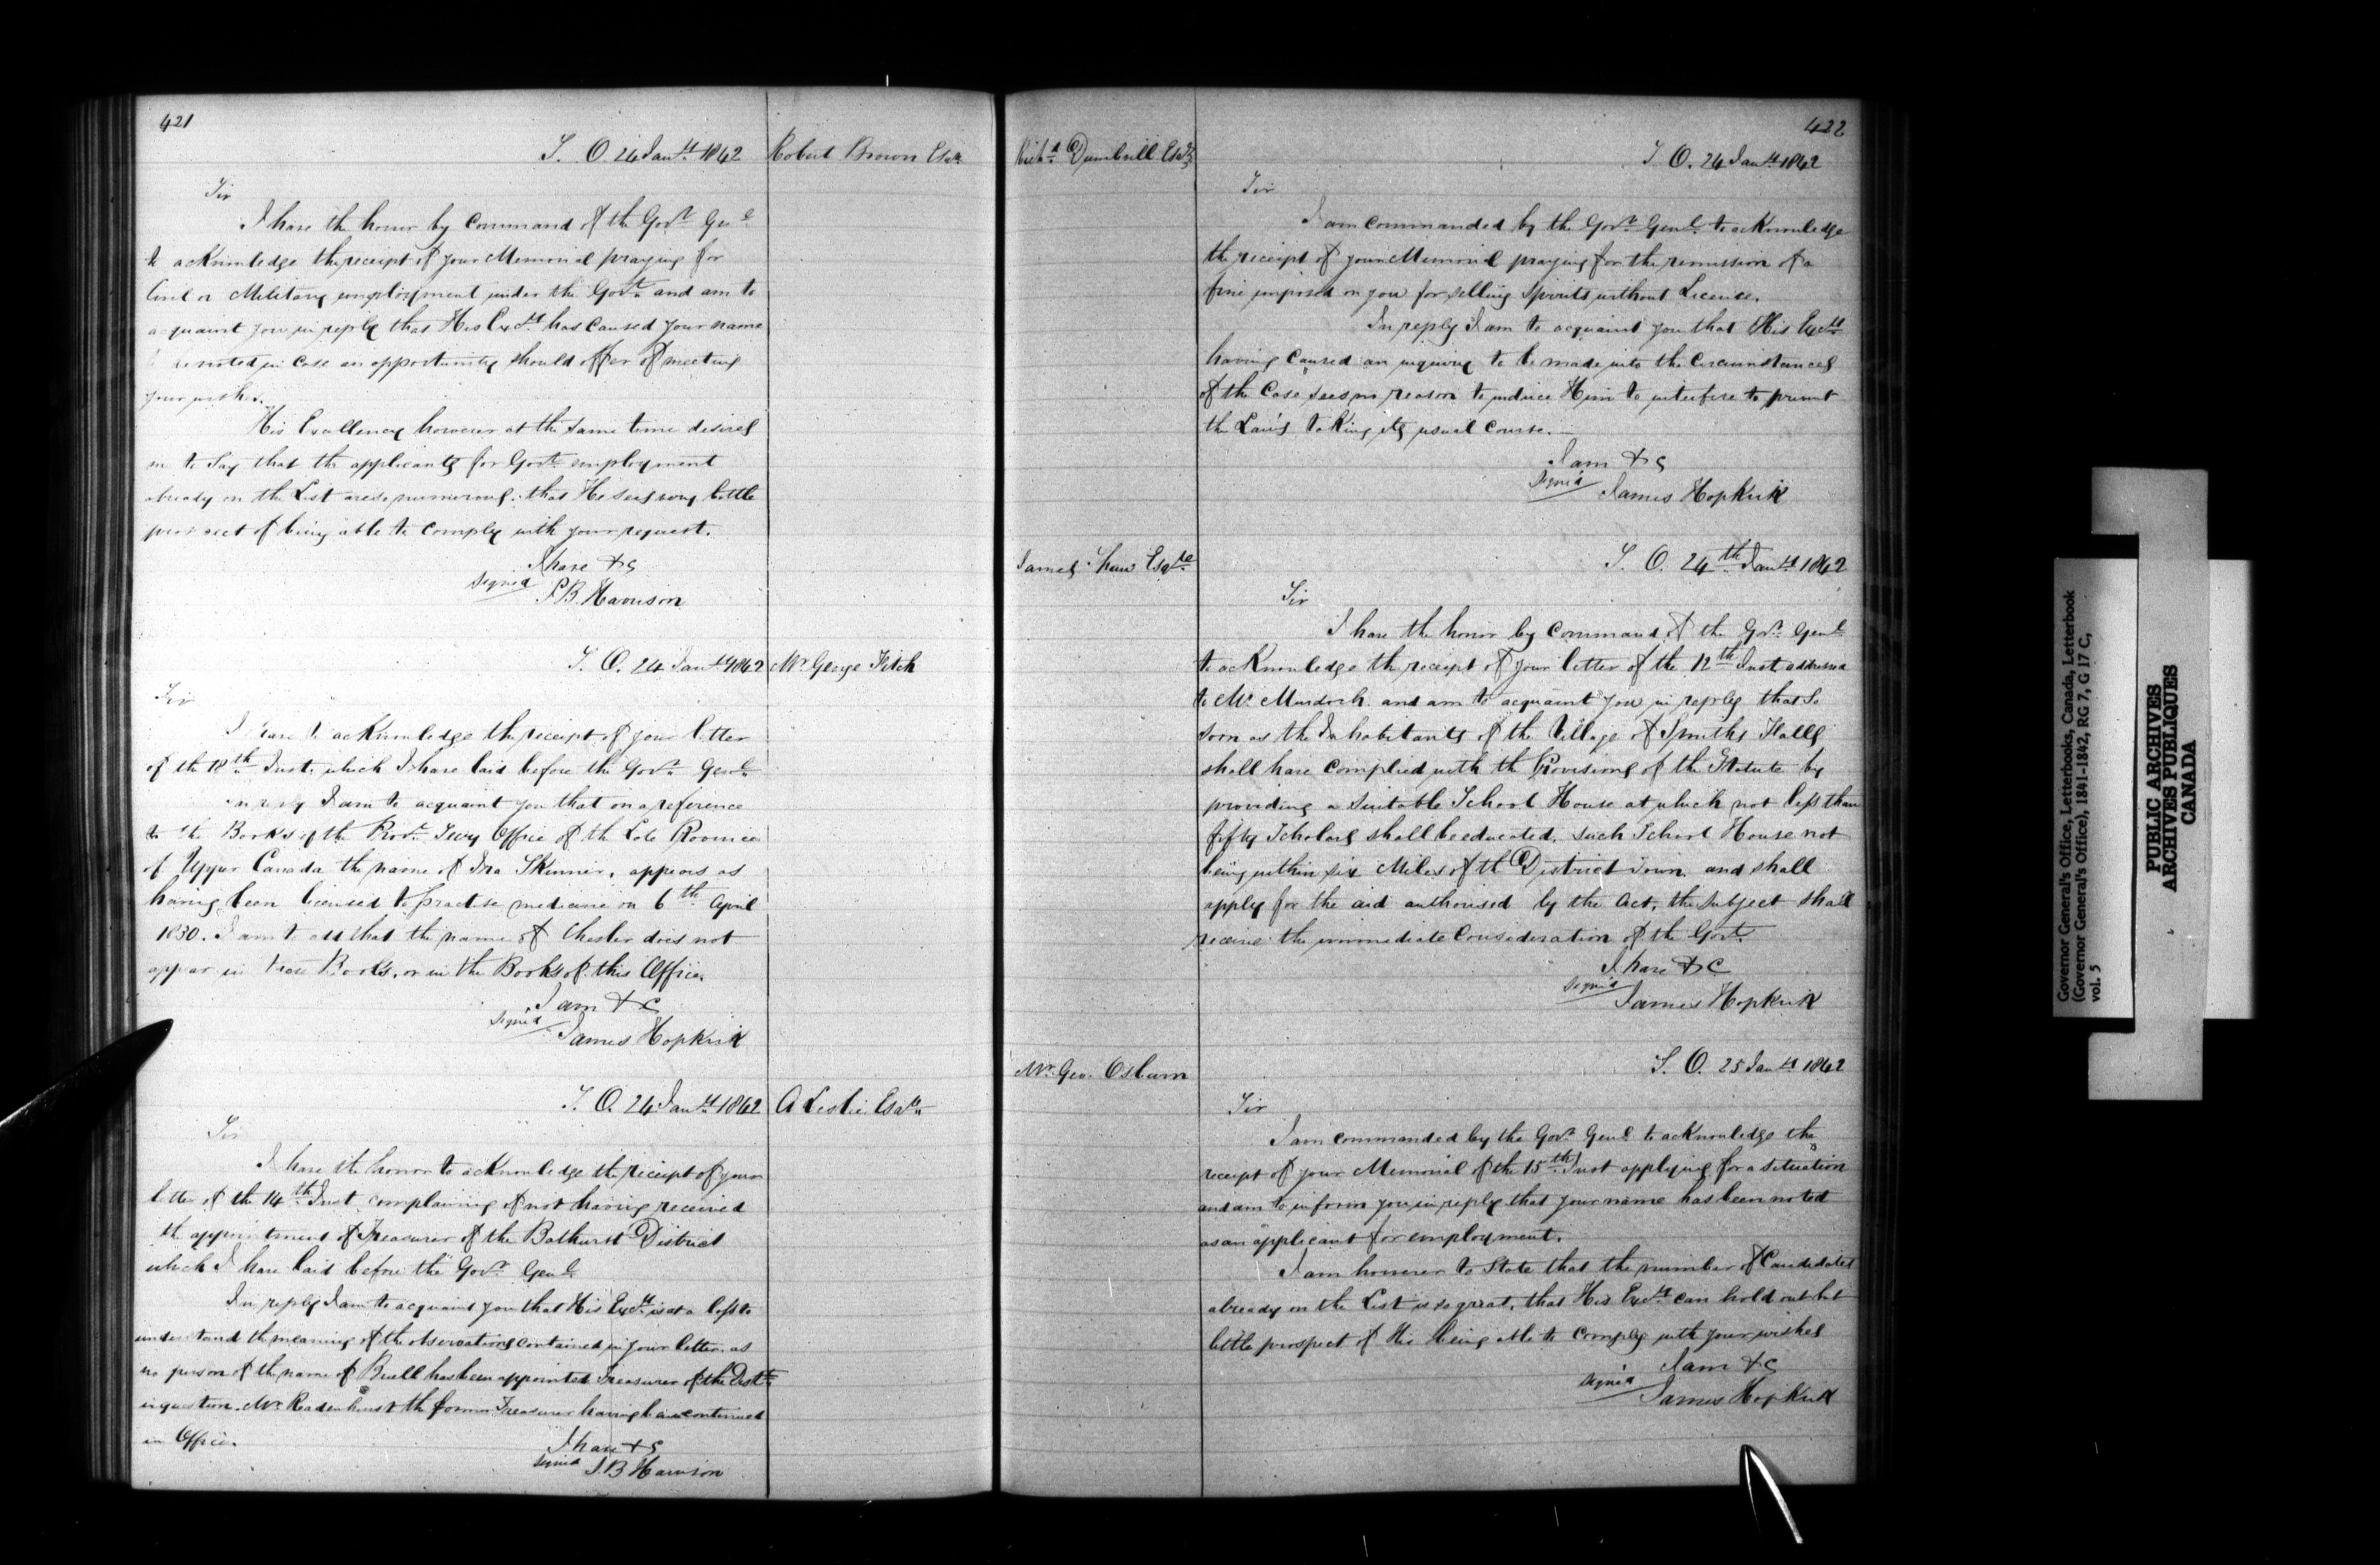 421
S. O. 24 Jany. 1842
Robert Brown Esqr.
Sir
I have the honor by Command of the Govr. Genl.
to acknowledge the receipt of your Memorial praying for
Civil or Military employment under the Govt. and am to
acquaint you in reply that His Excy. has caused your name
to be noted in case an opportunity should offer of meeting
your wishes.
His Excellency however at the same time desires
me to say that the applicants for Govt. employment
already on the List are so numerous, that He sees very little
prospect of being able to comply with your request.
I have &c
signed
S.B. Harrison
S. O. 24 Jany. 1842
Mr. George Fitch
Sir
I have to acknowledge the receipt of your letter
of the 18th. Inst. which I have laid before the Govr. Genl.
In reply I am to acquaint you that on a reference
to the Books of the Provl. Secy Office of the Late Province
of Upper Canada the name of Ira Skinner, appears as
having been licensed to practise medicine on 6th April
1830. I am to add that the name of Chester does not
appear in those Books, or in the Books of this Office.
I am &c
signed
James Hopkirk
S. O. 24 Jany. 1842
A Leslie Esqr.
Sir
I have the honor to acknowledge the receipt of your
letter of the 14th. Inst. complaining of not having received
the appointment of Treasurer of the Bathurst District
which I have laid before the Govr. Genl.
In reply I am to acquaint you that His Excy. is at a loss to
understand the meaning of the observations contained in your letter. as
no person of the name of Buell has been appointed Treasurer of the Distt.
in question. Mr. Radenhurst the former Treasurer having been continued
in Office.
I have &c
signed
S.B Harrison
422
Richd. Dumbrill Esqr.
S. O. 24 Jany. 1842
Sir
I am commanded by the Govr. Genl. to acknowledge
the receipt of your Memorial praying for the remission of a
fine imposed on you for selling Spirits without Licence.
In reply I am to acquaint you that His Excy.
having caused an inquiry to be made into the circumstances
of the Case sees no reason to induce Him to interfere to prevent
the Law's taking its usual Course.
I am &c
signed
James Hopkirk
James Shaw Esqre.
S. O. 24th. Jany. 1842
Sir
I have the honor by Command of the Govr. Genl.
to acknowledge the receipt of your letter of the 12th Inst. addressed
to Mr. Murdoch. and am to acquaint you in reply that so
soon as the Inhabitants of the Village of Smiths Falls
shall have complied with the Provisions of the Statute by
providing a suitable School House at which not less than
fifty Scholars shall be educated. such School House not
being within six Miles of the District Town. and shall
apply for the aid authorised by the Act, the subject shall
receive the immediate Consideration of the Govt.
I have &c
signed
James Hopkirk
Mr. Geo. Osburn
S. O. 25 Jany. 1842
Sir
I am commanded by the Govr. Genl. to acknowledge the
receipt of your Memorial of the 15th. Inst applying for a situation
and am to inform you in reply that your name has been noted
as an applicant for employment.
I am however to state that the number of Candidates
already on the List is so great, that His Excy. can hold out but
little prospect of His being able to comply with your wishes
I am &c
signed
James Hopkirk
Governor General's Office, Letterbooks, Canada, Letterbook
(Governor General's Office), 1841-1842, RG 7, G 17 C,
vol. 5
PUBLIC ARCHIVES
ARCHIVES PUBLIQUES
CANADA